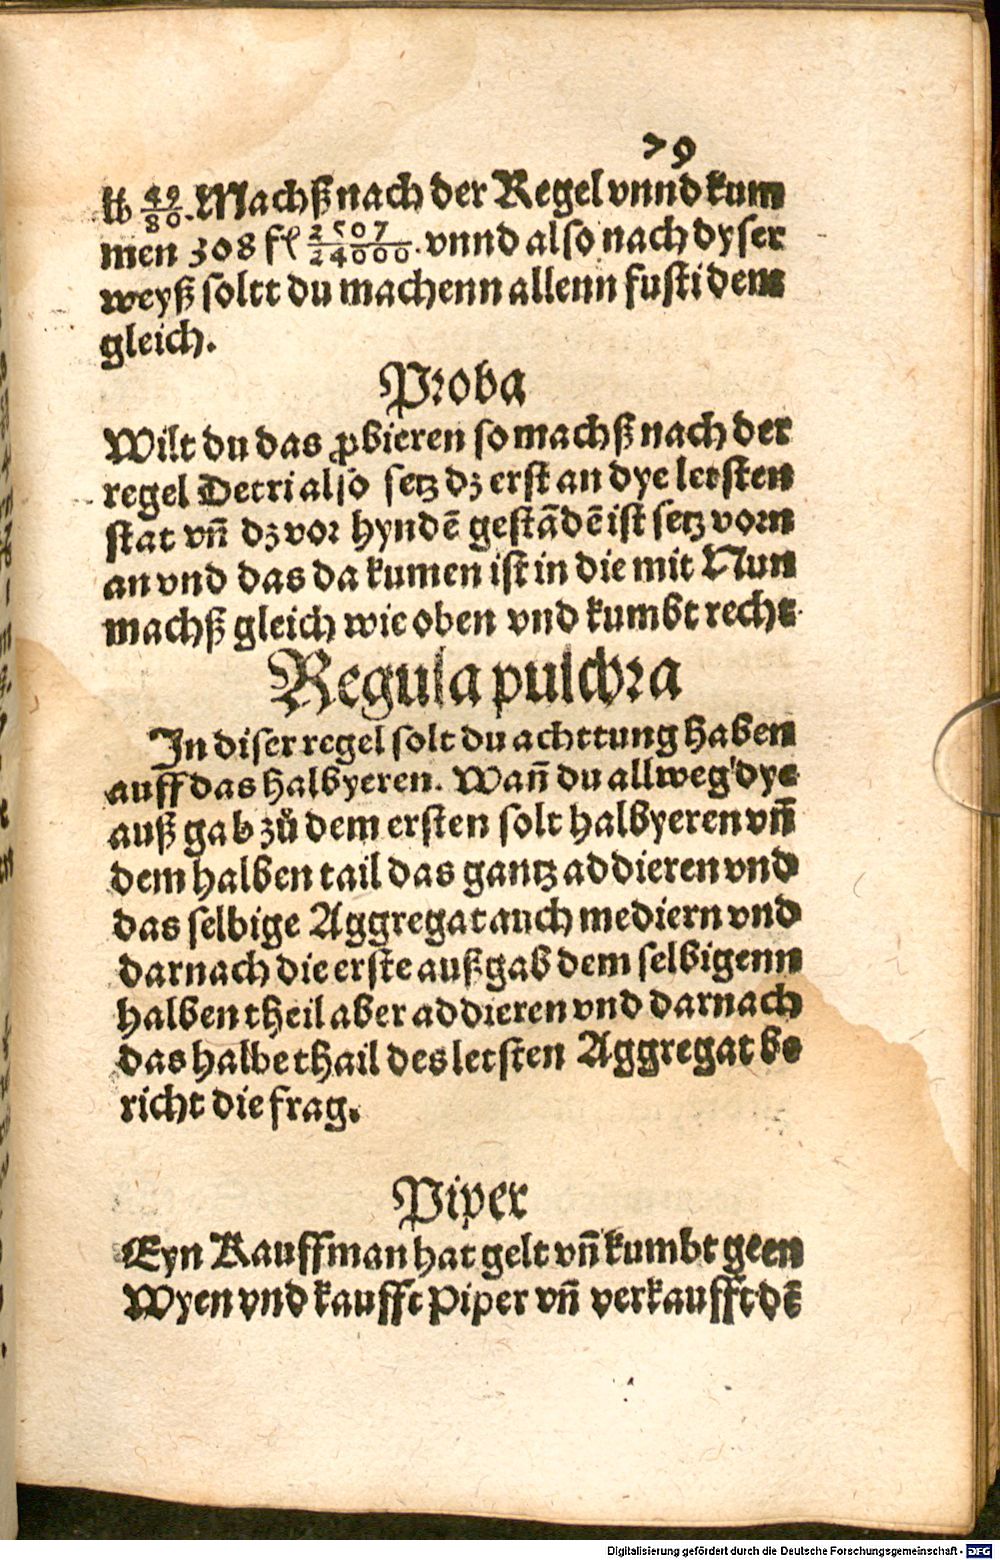 79
℔ 49/80. Machß nach der Regel vnnd kum
men 308 fl 2507/24000. vnnd also nach dyser
weyß soltt du machenn allenn fusti dem
gleich.
Proba
Wilt du das ꝓbieren so machß nach der
regel Detri also setz dz erst an dye letsten
stat vñ dz vor hyndē gestādē ist setz vorn
an vnd das da kumen ist in die mit Nun
machß gleich wie oben vnd kumbt recht
Regula pulchra
In diser regel solt du achttung haben
auff das halbyeren. Wañ du allweg dye
auß gab zů dem ersten solt halbyeren vñ
dem halben tail das gantz addieren vnd
das selbige Aggregat auch mediern vnd
darnach die erste außgab dem selbigenn
halben theil aber addieren vnd darnach
das halbe thail des letsten Aggregat be
richt die frag.
Piper
Eyn Kauffman hat gelt vñ kumbt geen
Wyen vnd kaufft Piper vñ verkaufft dē
Digitalisierung gefördert durch die Deutsche Forschungsgemeinschaft - DFG